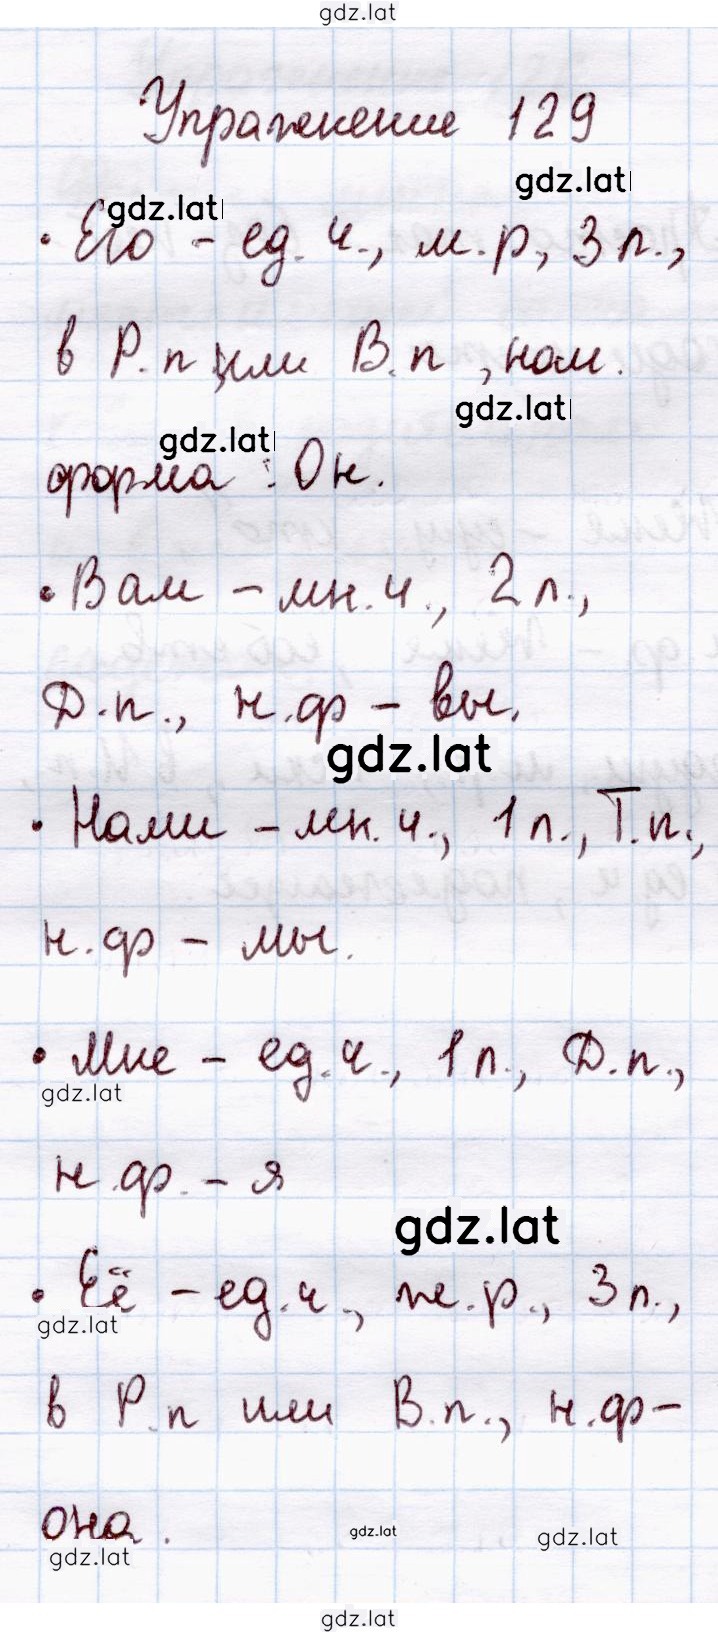 gdz.lat
Упражнение 129
gdz.lat
gdz.lat
• Его - ед. ч., м.р, 3 л.,
в Р.п или В.п , нач.
gdz.lat
gdz.lat
форма : Он.
• Вам - мн.ч., 2 л.,
Д.п., н.ф - вы.
gdz.lat
• Нами - мн. ч., 1 л., Т.п.,
н.ф - мы.
• Мне - ед.ч., 1 л., Д.п.,
gdz.lat
н.ф. - я
gdz.lat
• Её - ед.ч., ж.р., 3 л.,
gdz.lat
в Р.п или В.п., н.ф-
она.
gdz.lat
gdz.lat
gdz.lat
gdz.lat